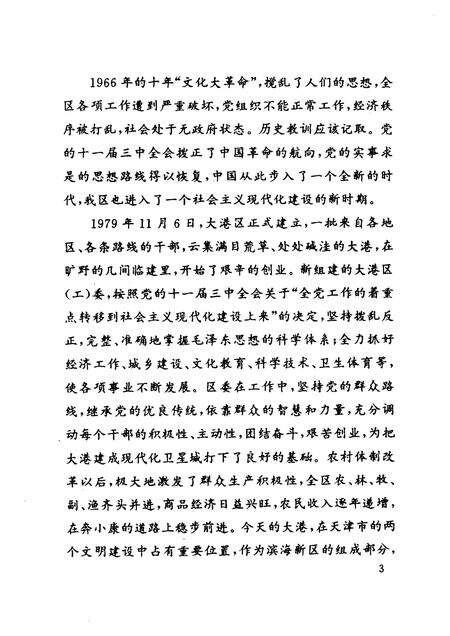 1966年的十年“文化大革命”，搅乱了人们的思想，全
区各项工作遭到严重破坏，党组织不能正常工作，经济秩
序被打乱，社会处于无政府状态。历史教训应该记取。党
的十一届三中全会拨正了中国革命的航向，党的实事求
是的思想路线得以恢复，中国从此步入了一个全新的时
代，我区也进入了一个社会主义现代化建设的新时期。
1979年11月6日，大港区正式建立，一批来自各地
区、各条路线的干部，云集满目荒草、处处碱洼的大港，在
旷野的几间临建里，开始了艰辛的创业。新组建的大港区
(工)委，按照党的十一届三中全会关于“全党工作的着重
点转移到社会主义现代化建设上来”的决定，坚持拨乱反
正，完整、准确地掌握毛泽东思想的科学体系；全力抓好
经济工作、城乡建设、文化教育、科学技术、卫生体育等，
使各项事业不断发展。区委在工作中，坚持党的群众路
线，继承党的优良传统，依靠群众的智慧和力量，充分调
动每个干部的积极性、主动性，团结奋斗，艰苦创业，为把
大港建成现代化卫星城打下了良好的基础。农村体制改
革以后，极大地激发了群众生产积极性，全区农、林、牧、
副、渔齐头并进，商品经济日益兴旺，农民收入逐年递增，
在奔小康的道路上稳步前进。今天的大港，在天津市的两
个文明建设中占有重要位置，作为滨海新区的组成部分，
3